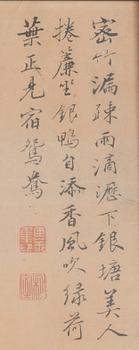 密竹漏疎雨滴瀝下銀塘美人
捲簾坐銀鴨自添香風吹綠荷
葉正見宿鴛鴦